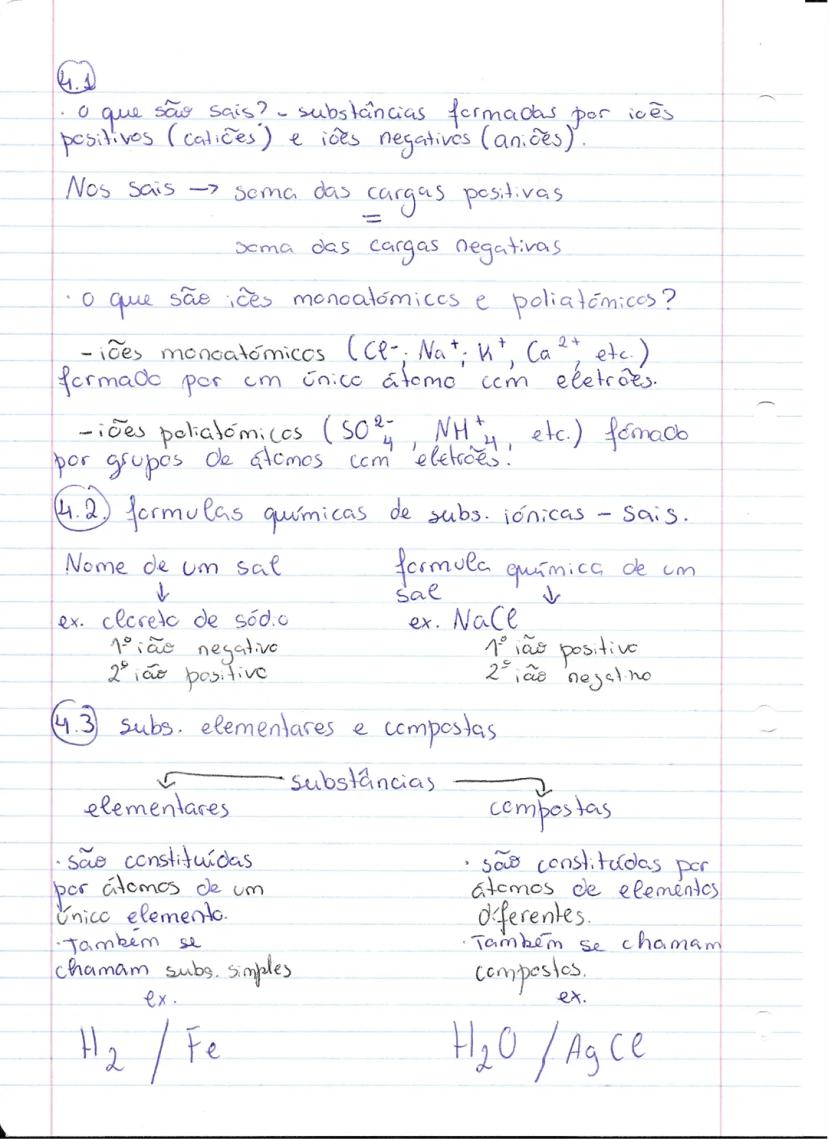 4.1
· O que são sais? - substâncias formadas por iões
positivos (catiões) e iões negativos (aniões).
Nos sais → soma das cargas positivas
=
soma das cargas negativas
· O que são iões monoatómicos e poliatómicos?
- iões monoatómicos (Cl⁻; Na⁺; K⁺, Ca²⁺, etc.)
formado por um único átomo com eletrões.
- iões poliatómicos (SO₄²⁻, NH₄⁺, etc.) fómado
por grupos de átomos com eletrões.
4.2. formulas químicas de subs. iónicas - sais.
Nome de um sal
↓
ex. cloreto de sódio
1º ião negativo
2º ião positivo
formula química de um
sal ↓
ex. NaCl
1º ião positivo
2º ião negativo
4.3 subs. elementares e compostas
substâncias
elementares
· são constituídas
por átomos de um
único elemento.
· Também se
chamam subs. simples
ex.
H₂ / Fe
compostas
· são constituídas por
átomos de elementos
diferentes.
· Também se chamam
compostos.
ex.
H₂O / AgCl